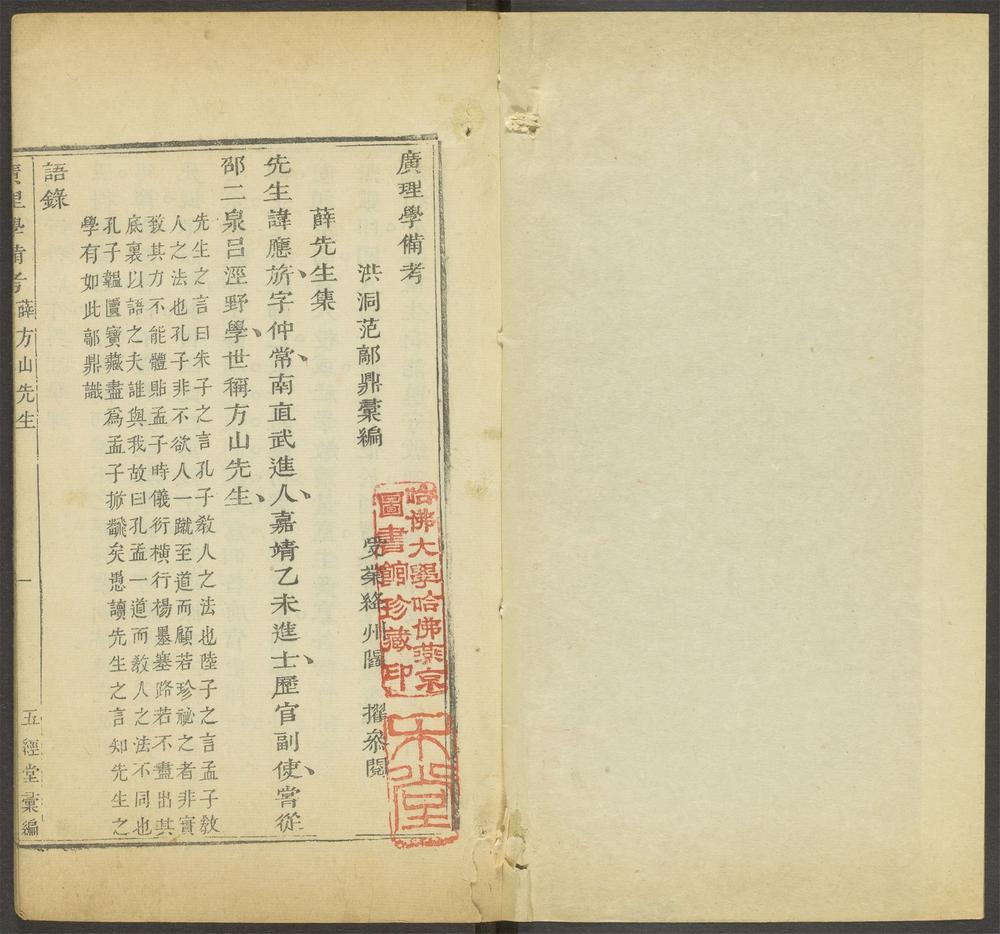 廣理學備考
洪洞范鄗鼎彙編
受業絳州閻擢叅閱
薛先生集
先生諱應旂字仲常南直武進人嘉靖乙未進士歷官副使嘗從
邵二泉呂涇野學世稱方山先生
先生之言曰朱子之言孔子敎人之法也陸子之言孟子敎
人之法也孔子非不欲人一蹴至道而顧若珍祕之者非實
致其力不能體貼孟子時儀衍橫行楊墨塞路若不盡出其
底裏以語之夫誰與我故曰孔孟一道而敎人之法不同也
孔子韞匵寶藏盡爲孟子掀飜矣愚讀先生之言知先生之
學有如此鄗鼎識
語錄
廣理學備考薛方山先生 一 五經堂彙編
哈佛大學哈佛燕京
圖書館珍藏印